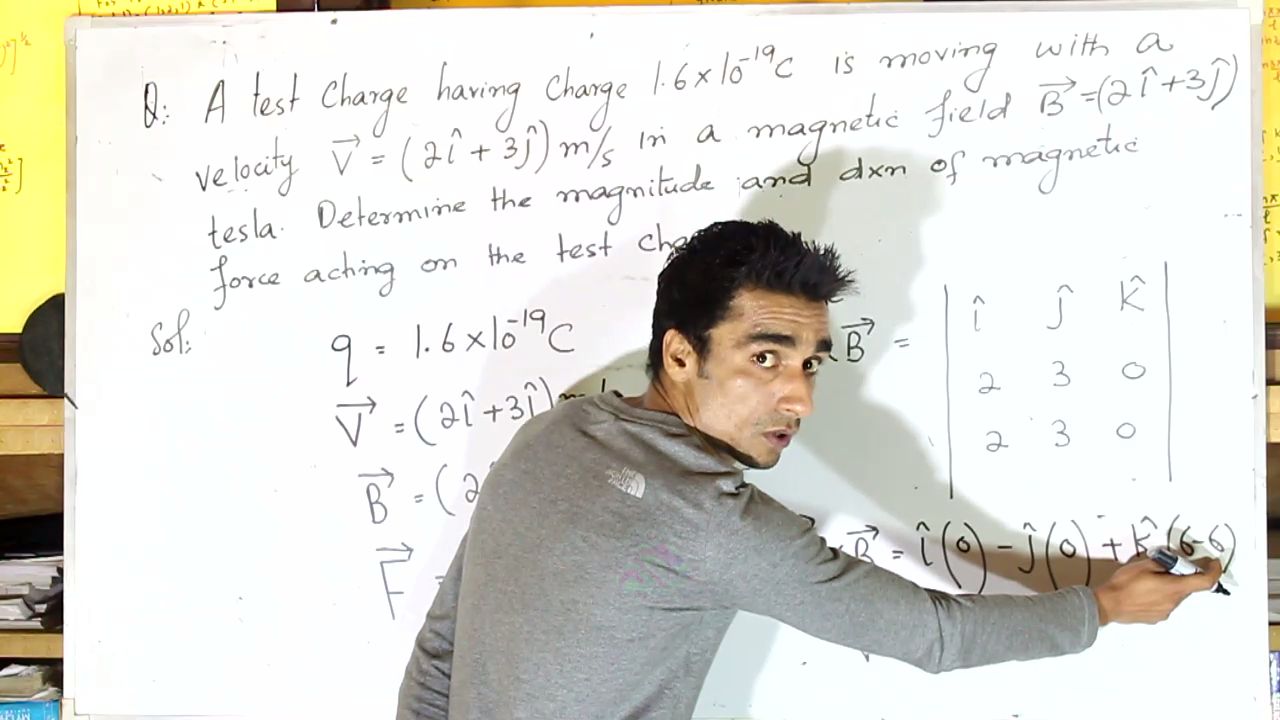 Q: A test Charge having Charge 1.6×10⁻¹⁹C is moving with a
velocity V⃗ = (2î + 3ĵ) m/s in a magnetic field B⃗ = (2î + 3ĵ)
tesla. Determine the magnitude and dxn of magnetic
force acting on the test
Sol:
q = 1.6×10⁻¹⁹C
V⃗ = (2î + 3ĵ)
B⃗ = (2
F⃗ =
B⃗ =
î ĵ k̂
2 3 0
2 3 0
B⃗ = î(0) - ĵ(0) + k̂(6-6)
THE NORTH FACE